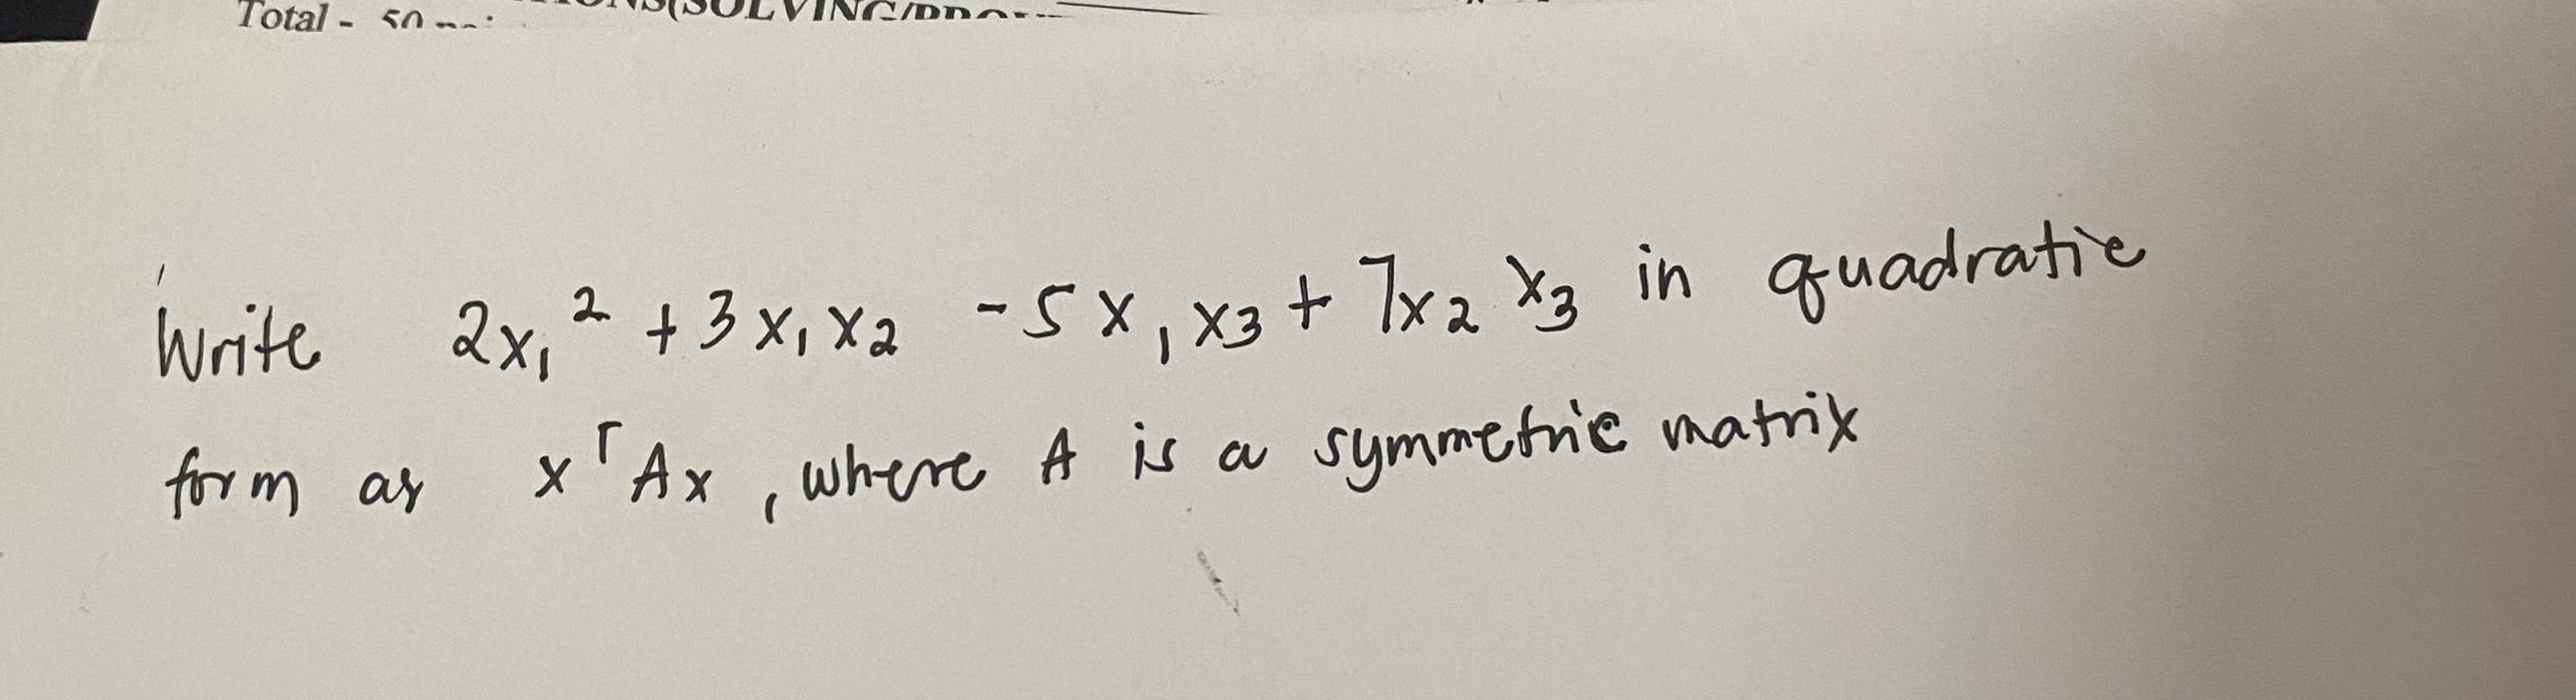 Total - 50
Write 2x₁² + 3x₁x₂ - 5x₁x₃ + 7x₂x₃ in quadratic
form as xᵀAx, where A is a symmetric matrix